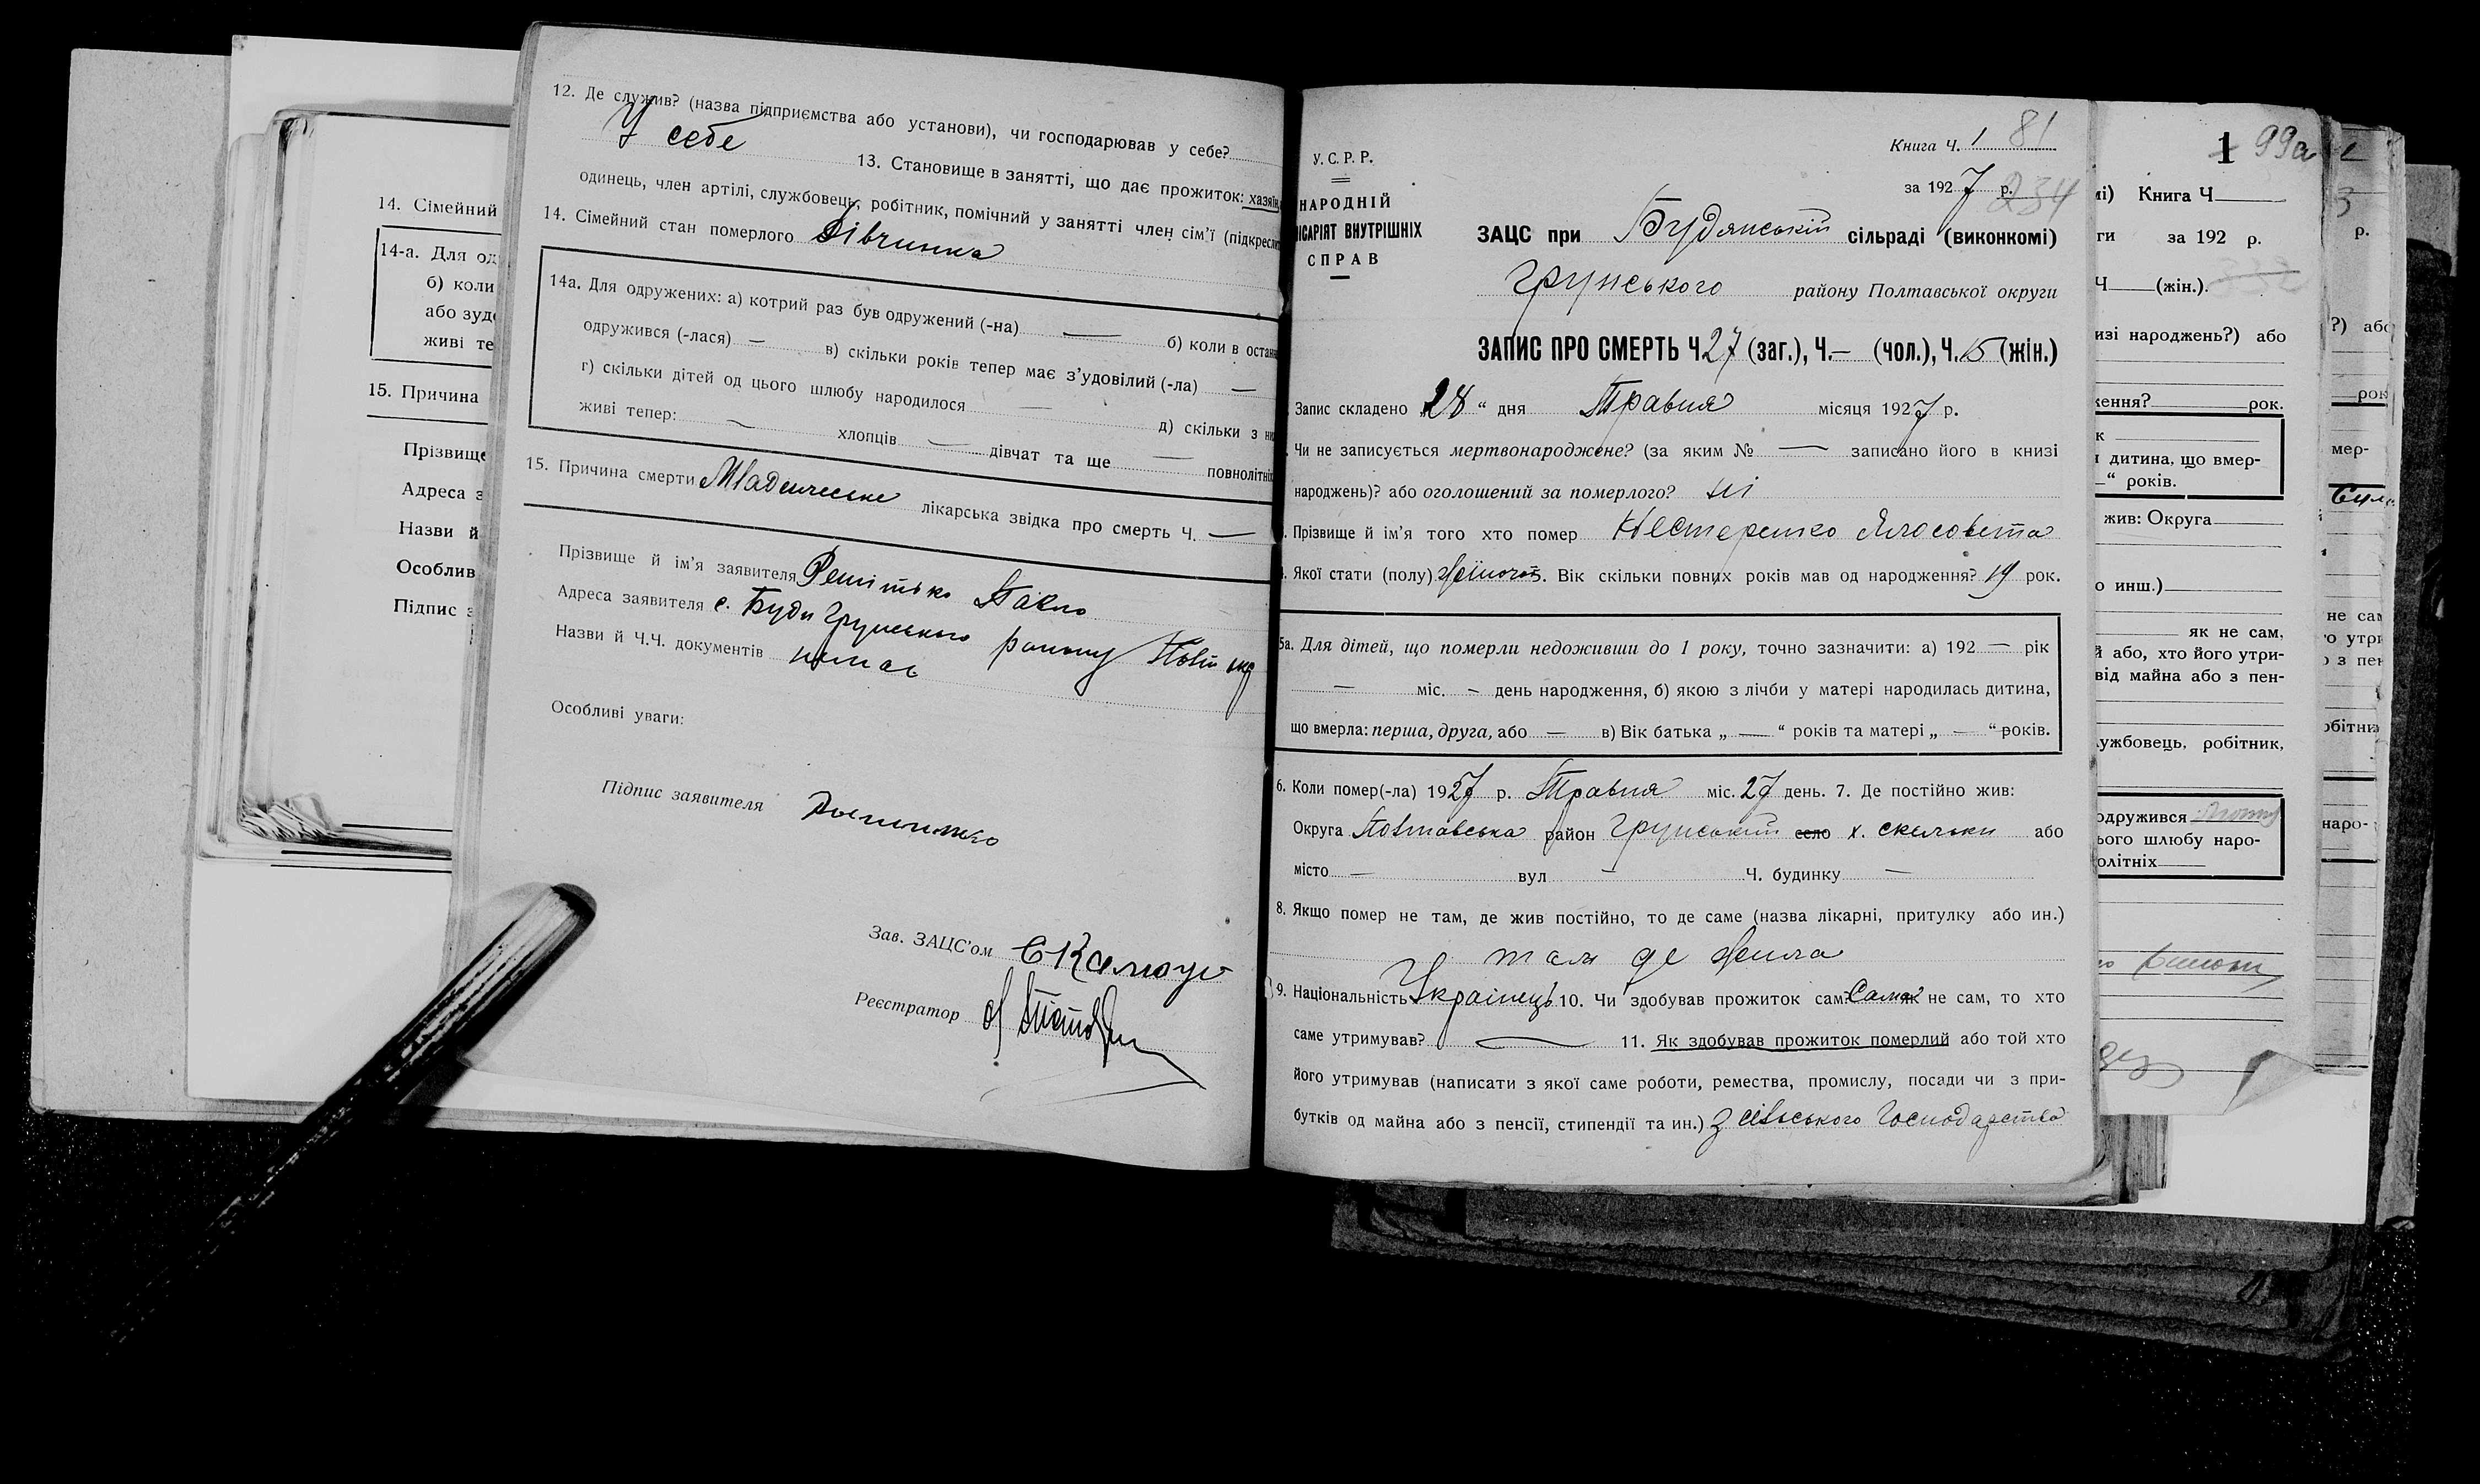 12. Де служив? (назва підприємства або установи), чи господарював у себе?
У себе 13. Становище в занятті, що дає прожиток: хазяїн,
одинець, член артілі, службовець, робітник, помічний у занятті член сім'ї (підкресли
14. Сімейний стан померлого Дівчинка
14а. Для одружених: а) котрий раз був одружений (-на) — б) коли в остан
одружився (-лася) — в) скільки років тепер має з'удовілий (-ла) —
г) скільки дітей од цього шлюбу народилося — д) скільки з ни
живі тепер: — хлопців — дівчат та ще — повнолітніх
15. Причина смерти Младенческе лікарська звідка про смерть Ч. —
Прізвище й ім'я заявителя Решітько Павло
Адреса заявителя с. Буди Грунського району Полт окр
Назви й Ч.Ч. документів немає
Особливі уваги:
Підпис заявителя
Зав. ЗАЦС'ом
Реєстратор
14. Сімейний
14-а. Для од
б) коли
або зуд
живі те
15. Причина
Прізвище
Адреса з
Назви й
Особлив
Підпис з
Книга Ч. 1 81
У.С.Р.Р.
за 1927 р. 234
НАРОДНІЙ
ІСАРІЯТ ВНУТРІШНІХ
СПРАВ
ЗАЦС при Будянській сільраді (виконкомі)
Грунського району Полтавської округи
ЗАПИС ПРО СМЕРТЬ Ч.27 (заг.), Ч.— (чол.), Ч.15 (жін.)
Запис складено „28“ дня Травня місяця 1927 р.
Чи не записується мертвонароджене? (за яким № — записано його в книзі
народжень)? або оголошений за померлого? ні
Прізвище й ім'я того хто помер Нестеренко Ялосовета
Якої стати (полу) жіночої. Вік скільки повних років мав од народження? 19 рок.
5а. Для дітей, що померли недоживши до 1 року, точно зазначити: а) 192 — рік
— міс. — день народження, б) якою з лічби у матері народилась дитина,
що вмерла: перша, друга, або — в) Вік батька „ — “ років та матері „ — “ років.
6. Коли помер(-ла) 1927 р. Травня міс. 27 день. 7. Де постійно жив:
Округа Полтавська район Грунський село х. Скельки або
місто — вул — Ч. будинку —
8. Якщо помер не там, де жив постійно, то де саме (назва лікарні, притулку або ин.)
там де жила
9. Національність Українець 10. Чи здобував прожиток сам? Сама як не сам, то хто
саме утримував? — 11. Як здобував прожиток померлий або той хто
його утримував (написати з якої саме роботи, ремества, промислу, посади чи з при-
бутків од майна або з пенсії, стипендії та ин.) З сільського Господарства
1 99а
мі) Книга Ч
ги за 192 р.
Ч (жін.).
изі народжень?) або
ження? рок.
к
я дитина, що вмер-
“ років.
жив: Округа
о инш.)
як не сам,
й або, хто його утри-
від майна або з пен-
ужбовець, робітник,
одружився
ього шлюбу наро-
олітніх
3
р.
?) або
рок
мер-
не сам
о утри
о з пен
обітник
наро-